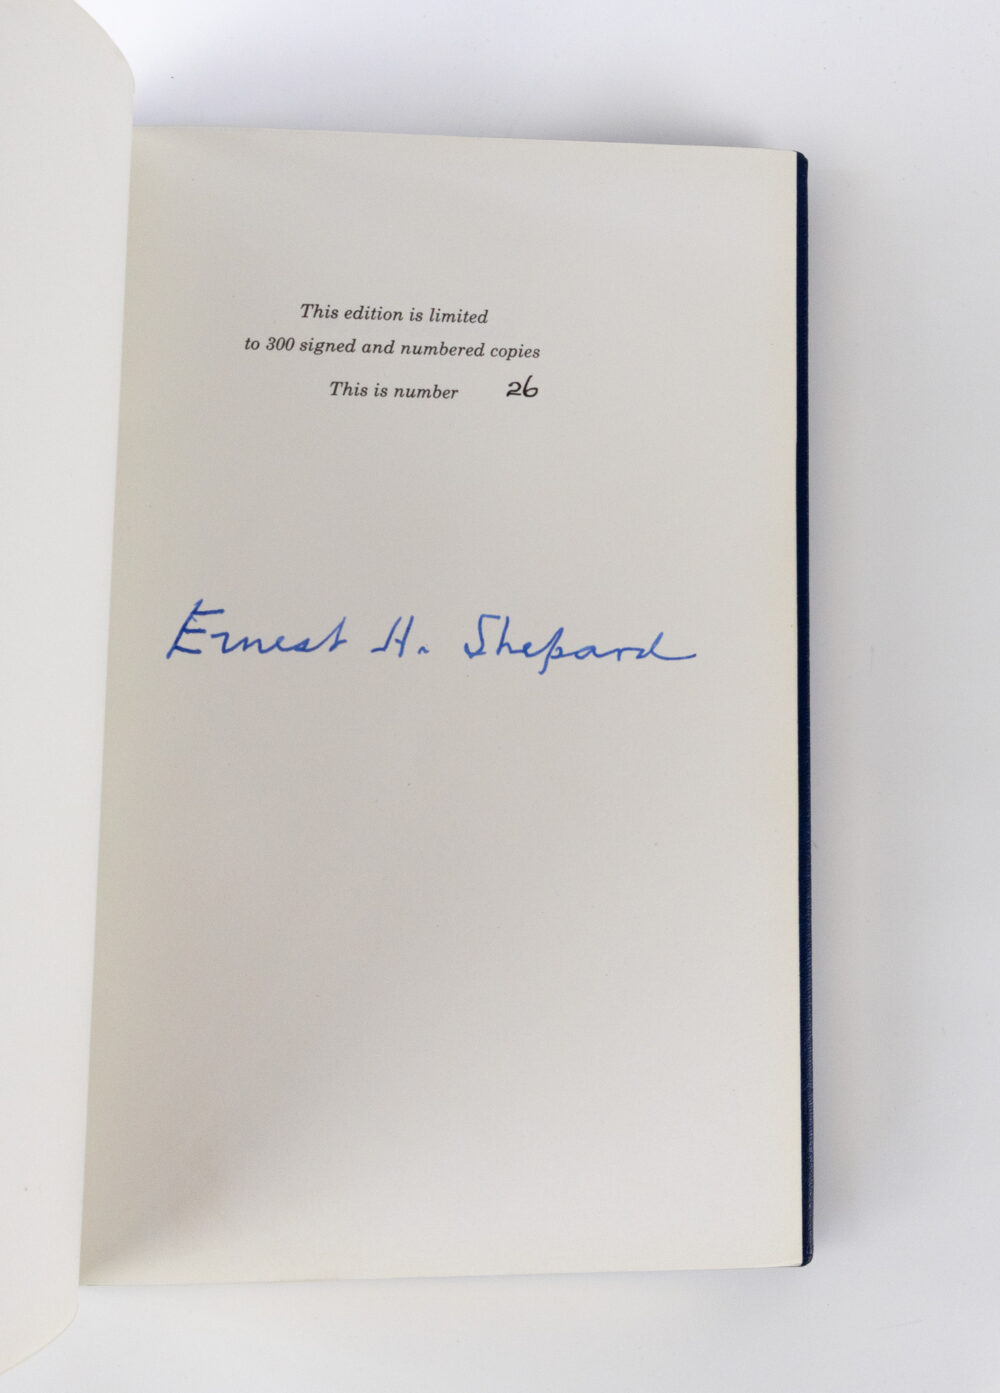 This edition is limited
to 300 signed and numbered copies
This is number 26
Ernest H. Shepard